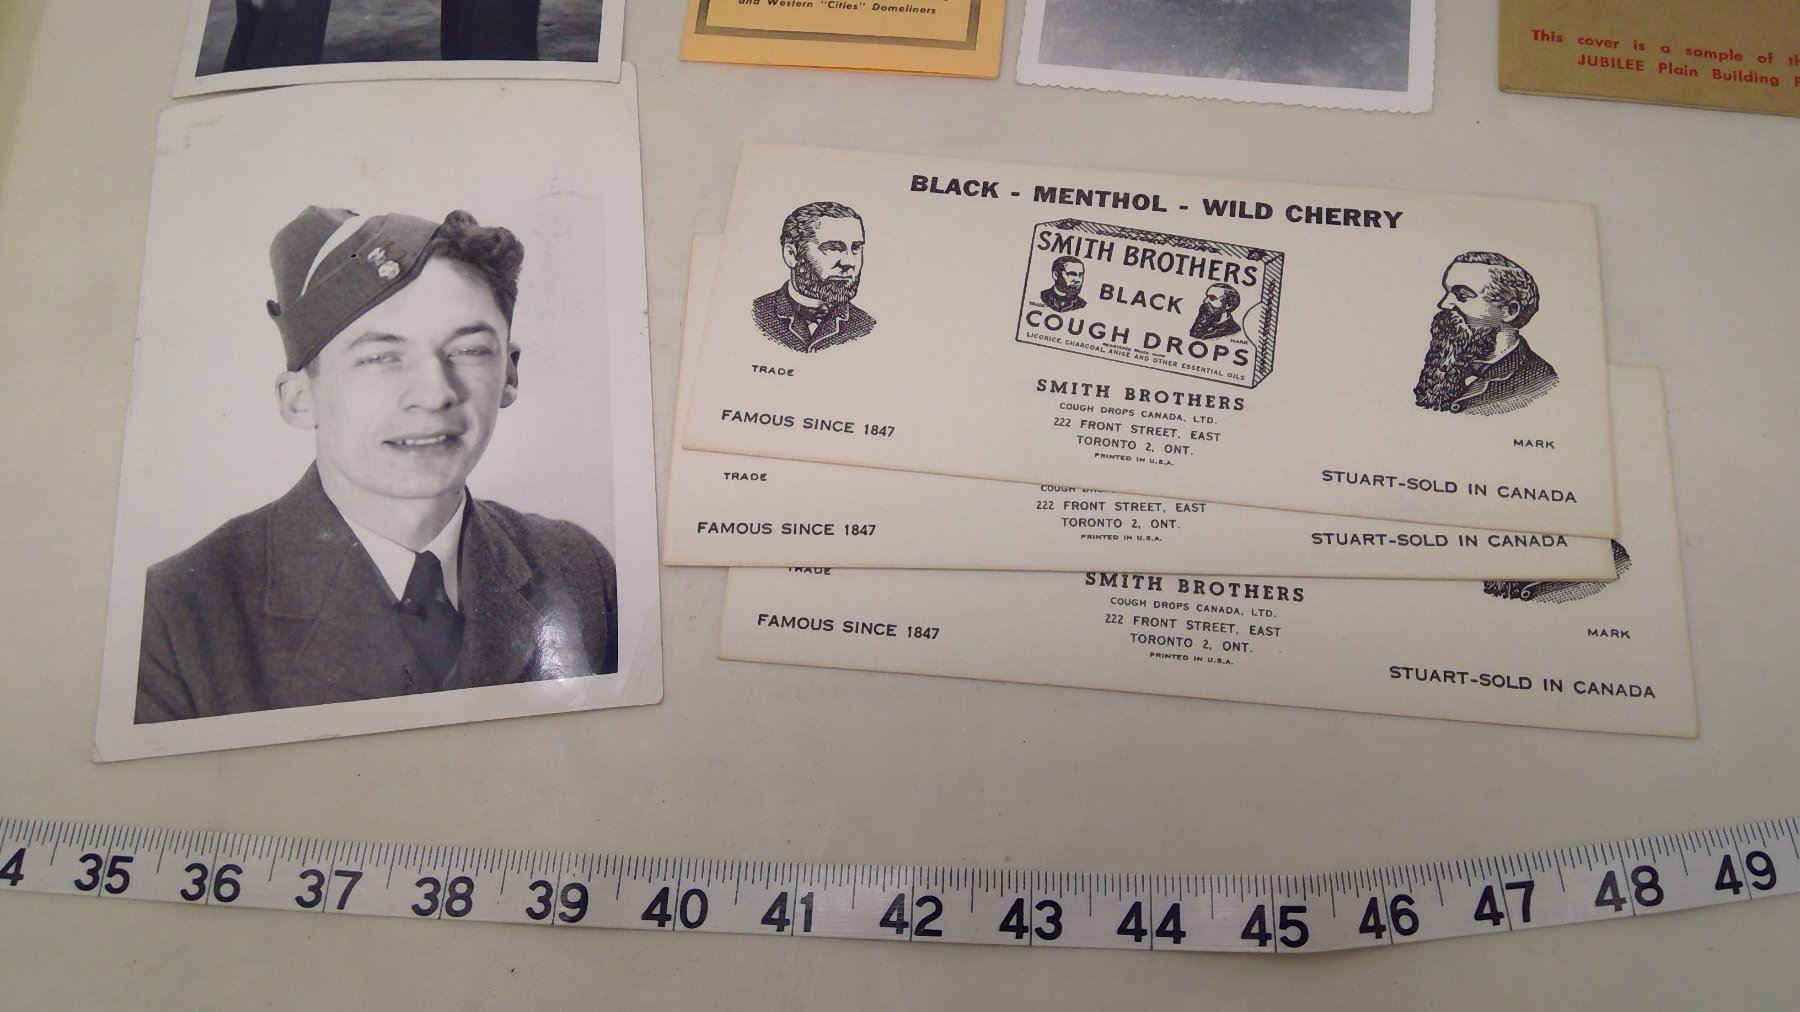 and Western "Cities" Domeliners
This cover is a sample of
JUBILEE Plain Building
BLACK - MENTHOL - WILD CHERRY
SMITH BROTHERS
BLACK
COUGH DROPS
TRADE
MARK
REGISTERED TRADE MARK
LICORICE, CHARCOAL, ANISE AND OTHER ESSENTIAL OILS
TRADE
MARK
SMITH BROTHERS
COUGH DROPS CANADA, LTD.
222 FRONT STREET, EAST
TORONTO 2, ONT.
PRINTED IN U.S.A.
FAMOUS SINCE 1847
STUART-SOLD IN CANADA
TRADE
COUGH
222 FRONT STREET, EAST
TORONTO 2, ONT.
PRINTED IN U.S.A.
FAMOUS SINCE 1847
STUART-SOLD IN CANADA
TRADE
SMITH BROTHERS
COUGH DROPS CANADA, LTD.
222 FRONT STREET, EAST
TORONTO 2, ONT.
PRINTED IN U.S.A.
MARK
FAMOUS SINCE 1847
STUART-SOLD IN CANADA
4 35 36 37 38 39 40 41 42 43 44 45 46 47 48 49